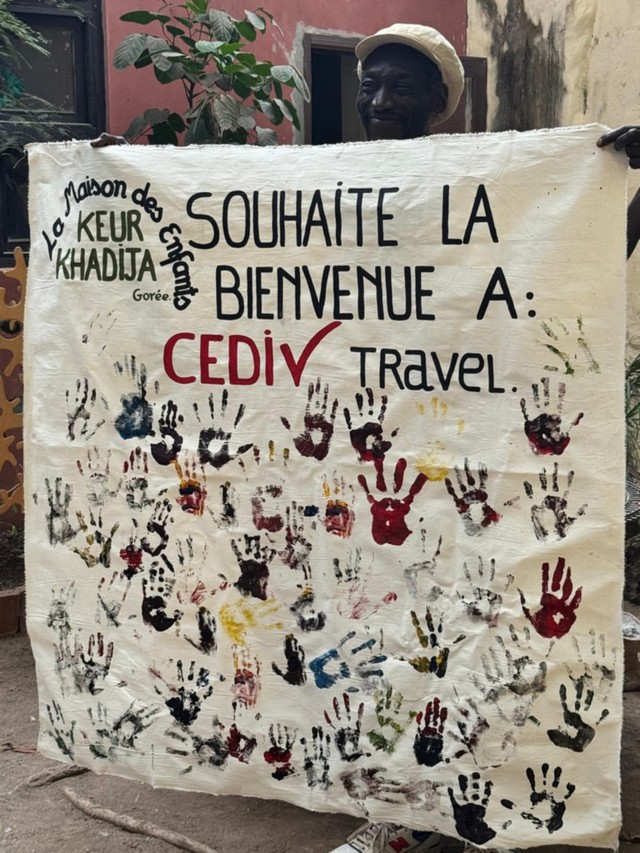 La Maison des Enfants
KEUR
KHADIJA
Gorée.
SOUHAiTE LA
BIENVENUE A:
CEDiV TRaveL.